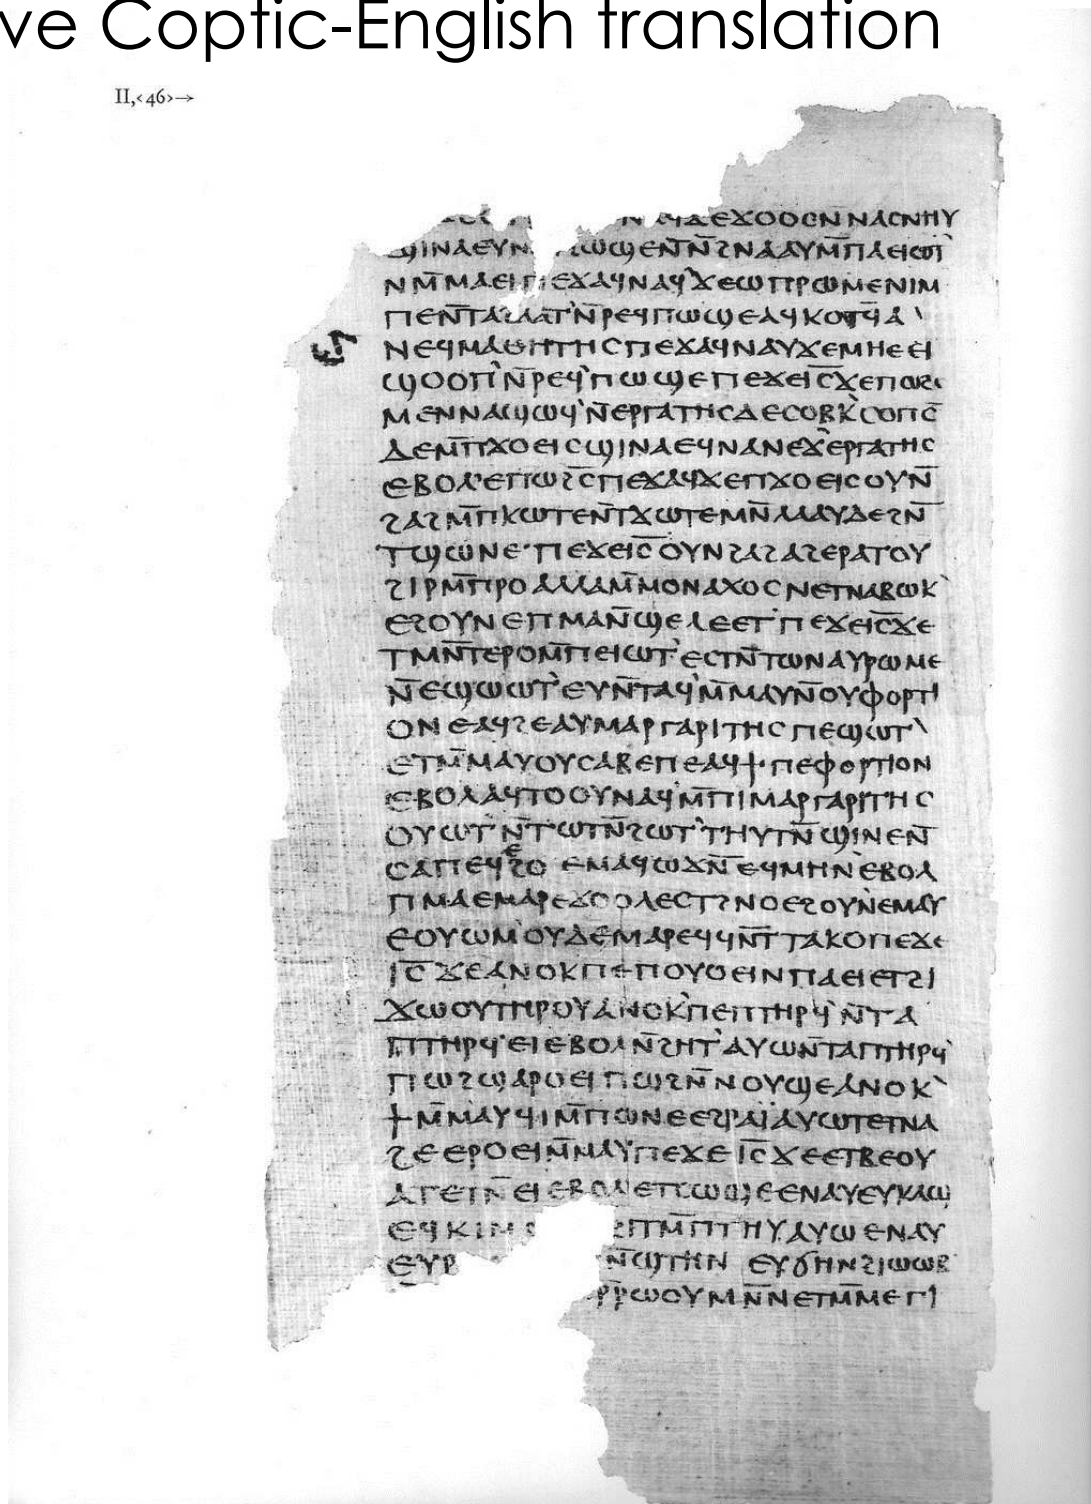 ve Coptic-English translation
II,‹46›→
ⲁϥ ⲇⲉ ϫⲟⲟⲥ ⲛ̄ⲛⲁⲥⲛⲏⲩ
ϣⲓⲛⲁ ⲉⲩⲛ ⲡⲱϣⲉ ⲛ̄ⲛ̄ϩⲛⲁⲁⲩ ⲙ̄ⲡⲁⲉⲓⲱⲧ`
ⲛⲙ̄ⲙⲁⲉⲓ ⲡⲉϫⲁϥ ⲛⲁϥ` ϫⲉ ⲱ ⲡⲣⲱⲙⲉ ⲛⲓⲙ
ⲡⲉⲛ̄ⲧⲁϩⲁⲁⲧ` ⲛ̄ⲣⲉϥⲡⲱϣⲉ ⲁϥⲕⲟⲧϥ̄ ⲁ`
ⲛⲉϥⲙⲁⲑⲏⲧⲏⲥ ⲡⲉϫⲁϥ ⲛⲁⲩ ϫⲉ ⲙⲏ ⲉⲉⲓ
ϣⲟⲟⲡ` ⲛ̄ⲣⲉϥ`ⲡⲱϣⲉ ⲡⲉϫⲉ ⲓ̄ⲥ̄ ϫⲉ ⲡⲱϩⲥ
ⲙⲉⲛ ⲛⲁϣⲱϥ` ⲛ̄ⲉⲣⲅⲁⲧⲏⲥ ⲇⲉ ⲥⲟⲃⲕ` ⲥⲟⲡⲥ̄
ⲇⲉ ⲙ̄ⲡϫⲟⲉⲓⲥ ϣⲓⲛⲁ ⲉϥⲛⲁⲛⲉϫ` ⲉⲣⲅⲁⲧⲏⲥ
ⲉⲃⲟⲗ` ⲉⲡⲱϩⲥ̄ ⲡⲉϫⲁϥ ϫⲉ ⲡϫⲟⲉⲓⲥ ⲟⲩⲛ̄
ϩⲁϩ ⲙ̄ⲡⲕⲱⲧⲉ ⲛ̄ⲧϫⲱⲧⲉ ⲙⲛ̄ ⲗⲁⲁⲩ ⲇⲉ ϩⲛ̄
ⲧϣⲱⲛⲉ· ⲡⲉϫⲉ ⲓ̄ⲥ̄ ⲟⲩⲛ ϩⲁϩ ⲁϩⲉⲣⲁⲧⲟⲩ
ϩⲓⲣⲙ̄ ⲡⲣⲟ ⲁⲗⲗⲁ ⲙ̄ⲙⲟⲛⲁⲭⲟⲥ ⲛⲉⲧⲛⲁⲃⲱⲕ`
ⲉϩⲟⲩⲛ ⲉⲡⲙⲁ ⲛ̄ϣⲉⲗⲉⲉⲧ` ⲡⲉϫⲉ ⲓ̄ⲥ̄ ϫⲉ
ⲧⲙⲛ̄ⲧⲉⲣⲟ ⲙ̄ⲡⲉⲓⲱⲧ` ⲉⲥⲧⲛ̄ⲧⲱⲛ ⲁⲩⲣⲱⲙⲉ
ⲛ̄ⲉϣⲱⲱⲧ` ⲉⲩⲛ̄ⲧⲁϥ` ⲙ̄ⲙⲁⲩ ⲛ̄ⲟⲩⲫⲟⲣⲧⲓ
ⲟⲛ ⲉⲁϥϩⲉ ⲁⲩⲙⲁⲣⲅⲁⲣⲓⲧⲏⲥ ⲡⲉϣⲱⲧ`
ⲉⲧⲙ̄ⲙⲁⲩ ⲟⲩⲥⲁⲃⲉ ⲡⲉ ⲁϥϯ ⲡⲉⲫⲟⲣⲧⲓⲟⲛ
ⲉⲃⲟⲗ ⲁϥⲧⲟⲟⲩ ⲛⲁϥ` ⲙ̄ⲡⲓⲙⲁⲣⲅⲁⲣⲓⲧⲏⲥ
ⲟⲩⲱⲧ` ⲛ̄ⲧⲱⲧⲛ̄ ϩⲱⲧ`ⲧⲏⲩⲧⲛ̄ ϣⲓⲛⲉ ⲛ̄
ⲥⲁ ⲡⲉϥⲉϩⲟ ⲉⲙⲁϥⲱϫⲛ̄ ⲉϥⲙⲏⲛ` ⲉⲃⲟⲗ
ⲡⲙⲁ ⲉⲙⲁⲣⲉϫⲟⲟⲗⲉⲥ ⲧϩⲛⲟ ⲉϩⲟⲩⲛ` ⲉⲙⲁⲩ
ⲉⲟⲩⲱⲙ` ⲟⲩⲇⲉ ⲙⲁⲣⲉϥϥⲛ̄ⲧ ⲧⲁⲕⲟ ⲡⲉϫⲉ
ⲓ̄ⲥ̄ ϫⲉ ⲁⲛⲟⲕ ⲡⲉ ⲡⲟⲩⲟⲉⲓⲛ ⲡⲁⲉⲓ ⲉⲧϩⲓ
ϫⲱⲟⲩ ⲧⲏⲣⲟⲩ ⲁⲛⲟⲕ` ⲡⲉ ⲡⲧⲏⲣϥ` ⲛ̄ⲧⲁ
ⲡⲧⲏⲣϥ` ⲉⲓ ⲉⲃⲟⲗ ⲛ̄ϩⲏⲧ` ⲁⲩⲱ ⲛ̄ⲧⲁ ⲡⲧⲏⲣϥ`
ⲡⲱϩ ϣⲁⲣⲟⲉⲓ ⲡⲱϩ ⲛ̄ⲛⲟⲩϣⲉ ⲁⲛⲟⲕ`
ϯⲙ̄ⲙⲁⲩ ϥⲓ ⲙ̄ⲡⲱⲛⲉ ⲉϩⲣⲁⲓ̈ ⲁⲩⲱ ⲧⲉⲧⲛⲁ
ϩⲉ ⲉⲣⲟⲉⲓ ⲙ̄ⲙⲁⲩ ⲡⲉϫⲉ ⲓ̄ⲥ̄ ϫⲉ ⲉⲧⲃⲉ ⲟⲩ
ⲁⲧⲉⲧⲛ̄ⲉⲓ ⲉⲃⲟⲗ ⲉⲧⲥⲱϣⲉ ⲉⲛⲁⲩ ⲉⲩⲕⲁϣ
ⲉϥⲕⲓⲙ ϩⲓⲧⲙ̄ ⲡⲧⲏⲩ ⲁⲩⲱ ⲉⲛⲁⲩ
ⲉⲩⲣ ⲛ̄ϣⲧⲏⲛ ⲉⲩϭⲏⲛ ϩⲓⲱⲱⲃ
ⲣ̄ⲣⲱⲟⲩ ⲙⲛ̄ ⲛⲉⲧⲙ̄ⲙⲉⲅⲓ